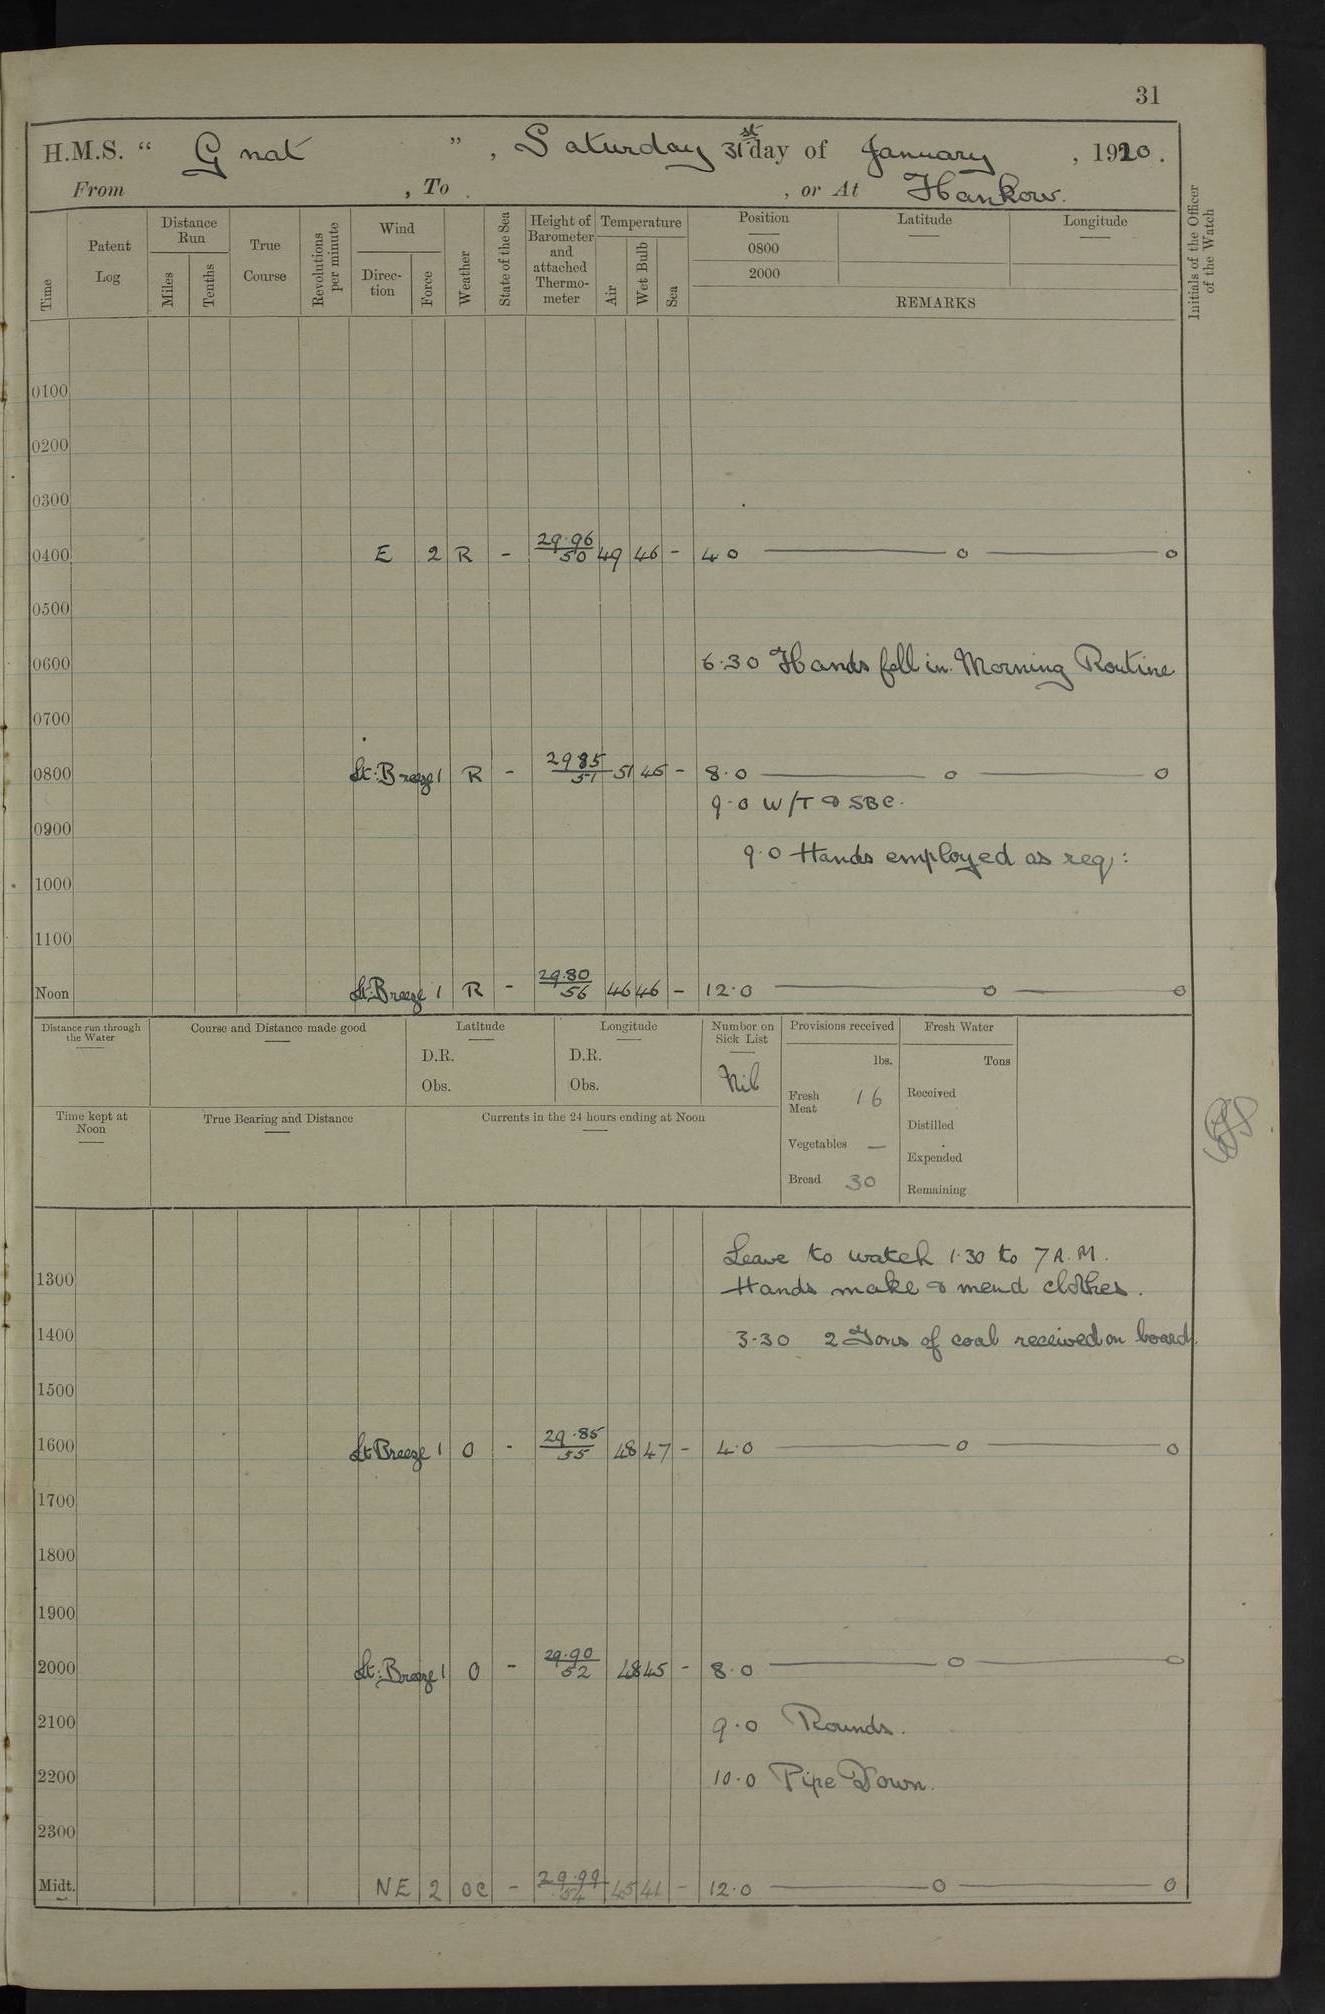 31
H.M.S. “ Gnat ” , Saturday 31st day of January , 1920 .
From , To . , or At Hankow.
Time
Patent Log
Distance Run
Miles
Tenths
True Course
Revolutions per minute
Wind
Direc-tion
Force
Weather
State of the Sea
Height of Barometer and attached Thermo-meter
Temperature
Air
Wet Bulb
Sea
Position
0800
2000
Latitude
Longitude
REMARKS
Initials of the Officer of the Watch
0100
0200
0300
0400 E 2 R - 29.96/50 49 46 - 4 0 — o — o
0500
0600 6.30 Hands fell in. Morning Routine
0700
0800 Lt: Breeze 1 R - 29 85/51 51 45 - 8.0 — o — o
9.0 W/T & SBC.
0900
9.0 Hands employed as req:
1000
1100
Noon Lt: Breeze 1 R - 29.80/56 46 46 - 12.0 — o — o
Distance run through the Water
Course and Distance made good
Latitude
D.R.
Obs.
Longitude
D.R.
Obs.
Number on Sick List
Nil
Provisions received
lbs.
Fresh Meat 16
Vegetables —
Bread 30
Fresh Water
Tons
Received
Distilled
Expended
Remaining
Time kept at Noon
True Bearing and Distance
Currents in the 24 hours ending at Noon
Leave to watch 1.30 to 7 A.M.
1300 Hands make & mend clothes.
1400 3-30 2 Tons of coal received on board.
1500
1600 Lt Breeze 1 O - 29.85/55 48 47 - 4.0 — o — o
1700
1800
1900
2000 Lt: Breeze 1 O - 29.90/52 48 45 - 8.0 — o — o
2100 9.0 Rounds.
2200 10.0 Pipe Down.
2300
Midt. NE 2 OC - 29.99/54 45 41 - 12.0 — o — o